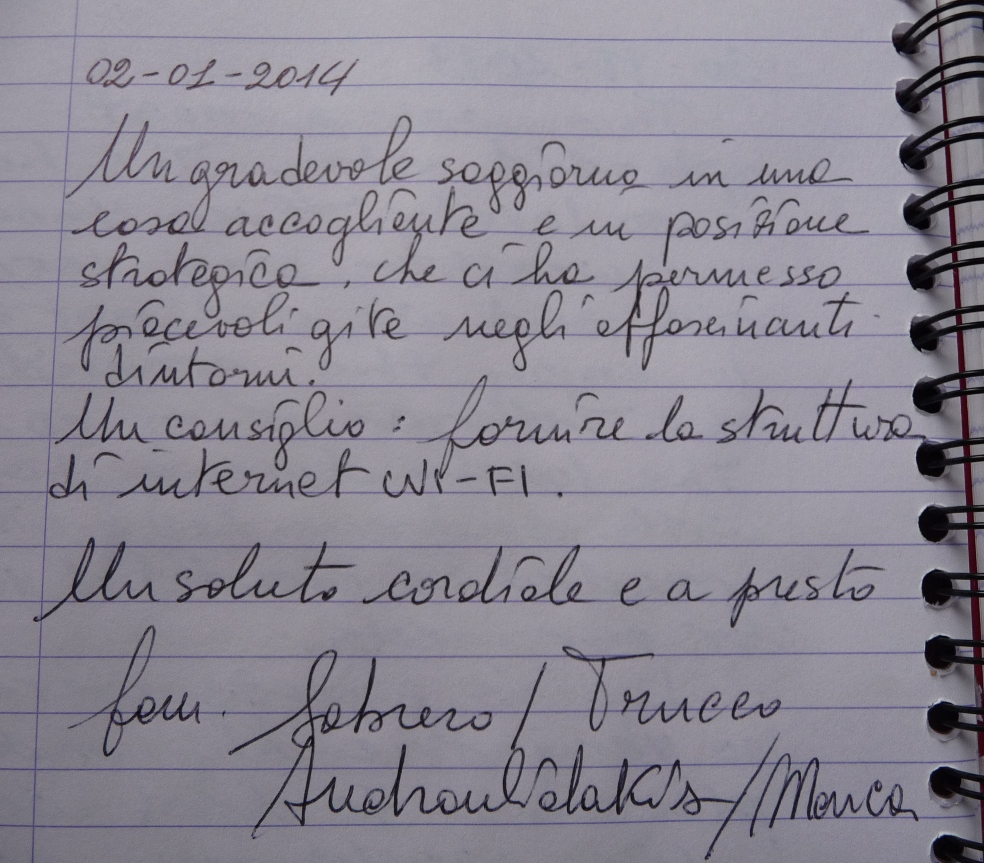 02-01-2014
Un gradevole soggiorno in una
casa accogliente e in posizione
strategica, che ci ha permesso
piacevoli gite negli affascinanti
dintorni.
Un consiglio: fornire la struttura
di internet WI-FI.
Un saluto cordiale e a presto
fam. / Trucco
/ Manca